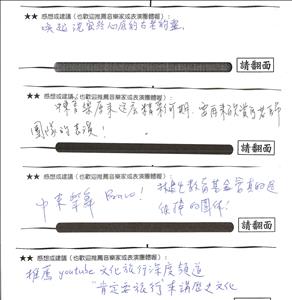 ★★ 感想或建議（也歡迎推薦音樂家或表演團體喔）：
喚起沉寂於心底的古老的靈
請翻面
★★ 感想或建議（也歡迎推薦音樂家或表演團體喔）：
音樂原來這麼精彩可期,
團隊的表演!
請翻面
★★ 感想或建議（也歡迎推薦音樂家或表演團體喔）：
中東聲 Bravo! 教育基金會真的是
很棒的團體!
請翻面
★★ 感想或建議（也歡迎推薦音樂家或表演團體喔）：
推薦 youtube 文化旅行深度頻道
"肯定要旅行" 來講歷史文化